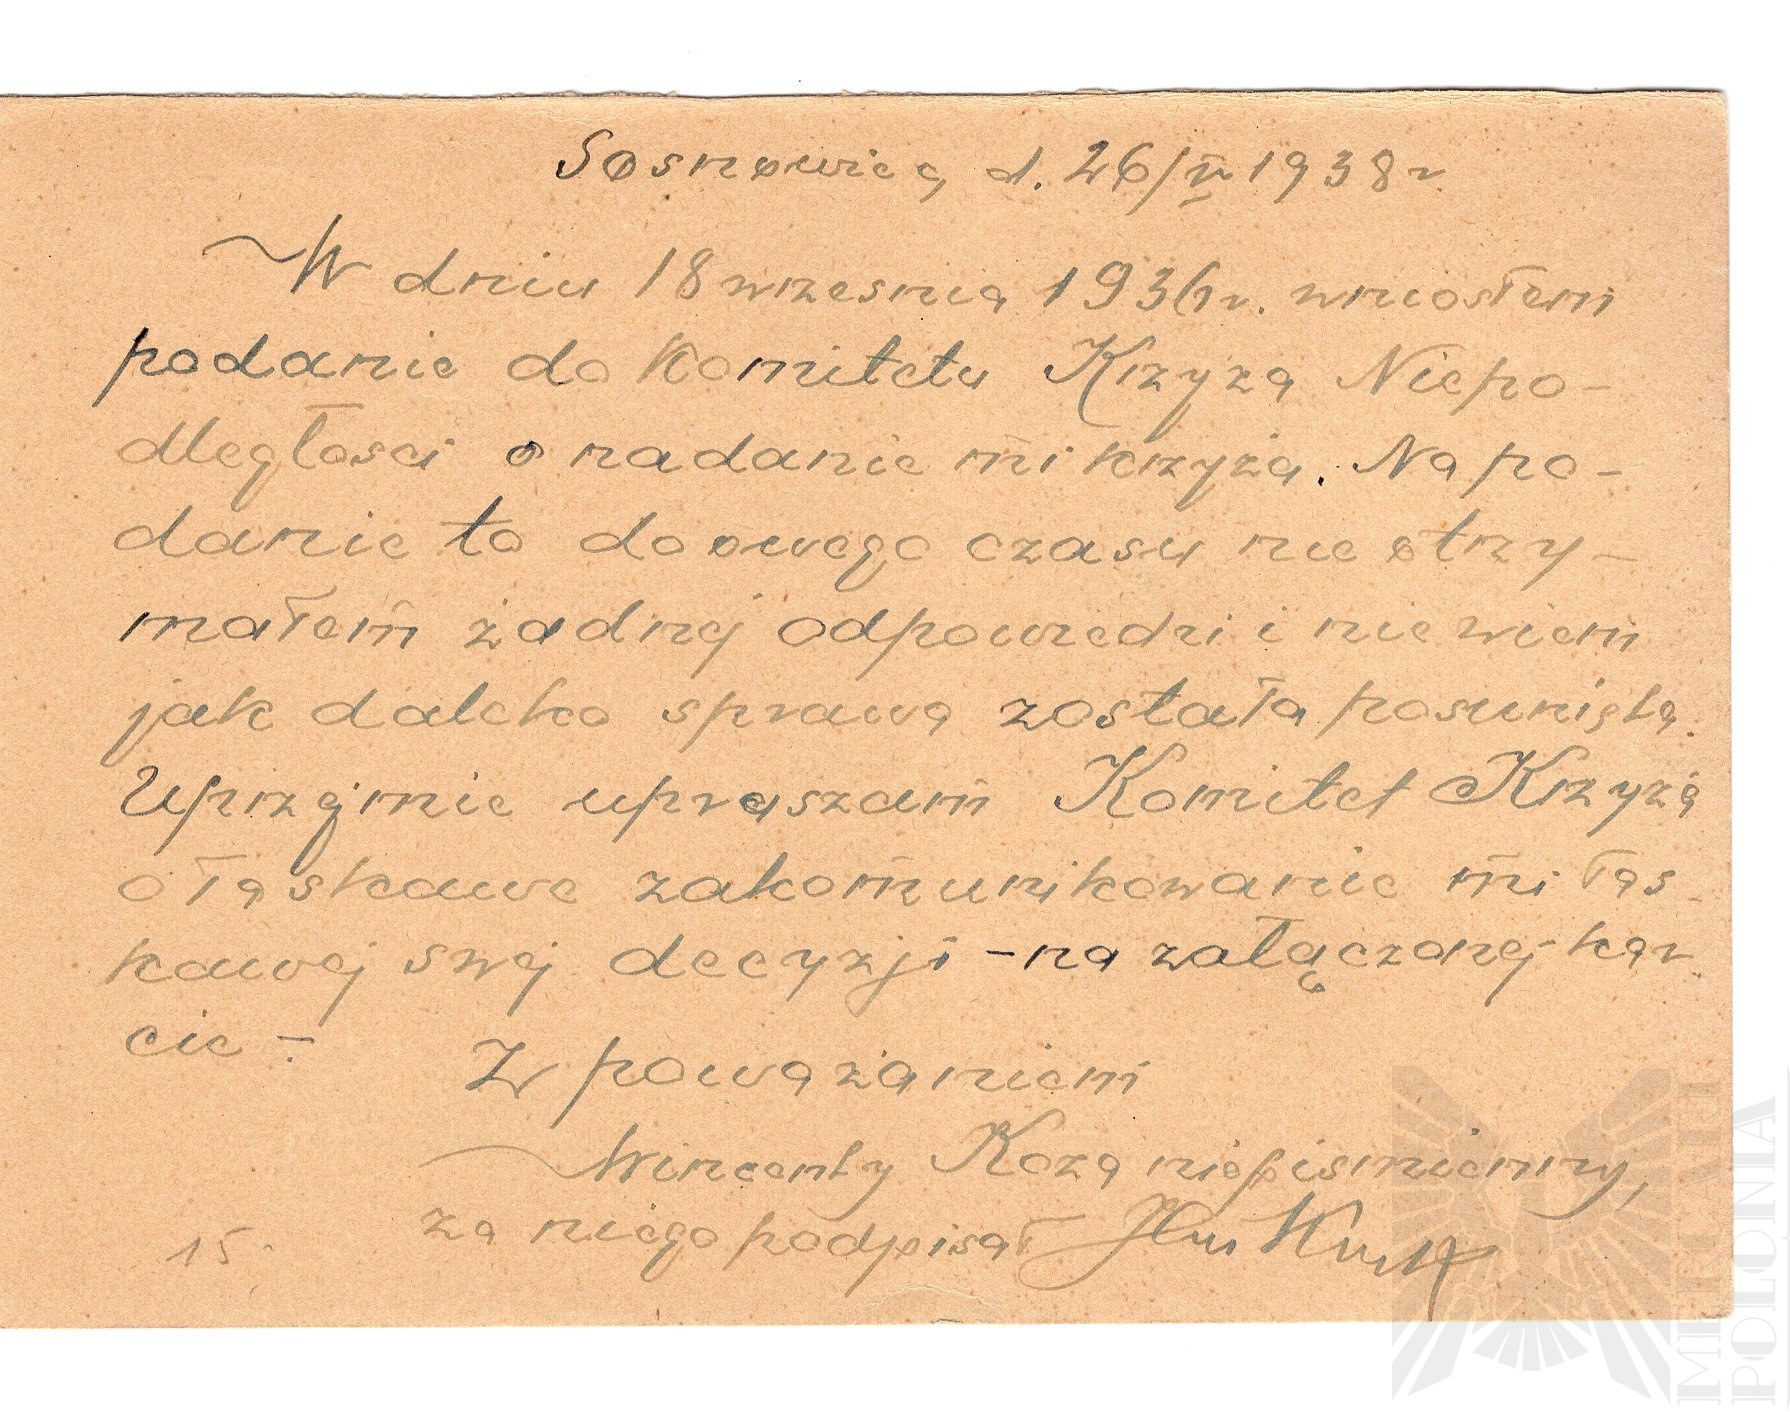 Sosnowiec, d. 26/V 1938 r.
W dniu 18 wrzesnia 1936 r. wniosłem
podanie do Komitetu Krzyża Niepo-
dległosci o nadanie mi krzyża. Na po-
danie to do owego czasu nie otrzy-
małem żadnej odpowiedzi i nie wiem
jak daleko sprawa została posunięta.
Uprzejmie upraszam Komitet Krzyża
o łaskawe zakomunikowanie mi łas-
kawej swej decyzji - na załączonej kar-
cie -
Z poważaniem
Wincenty Koza niepismienny,
za niego podpisał
15.
MEMORIAŁ
POLONIA